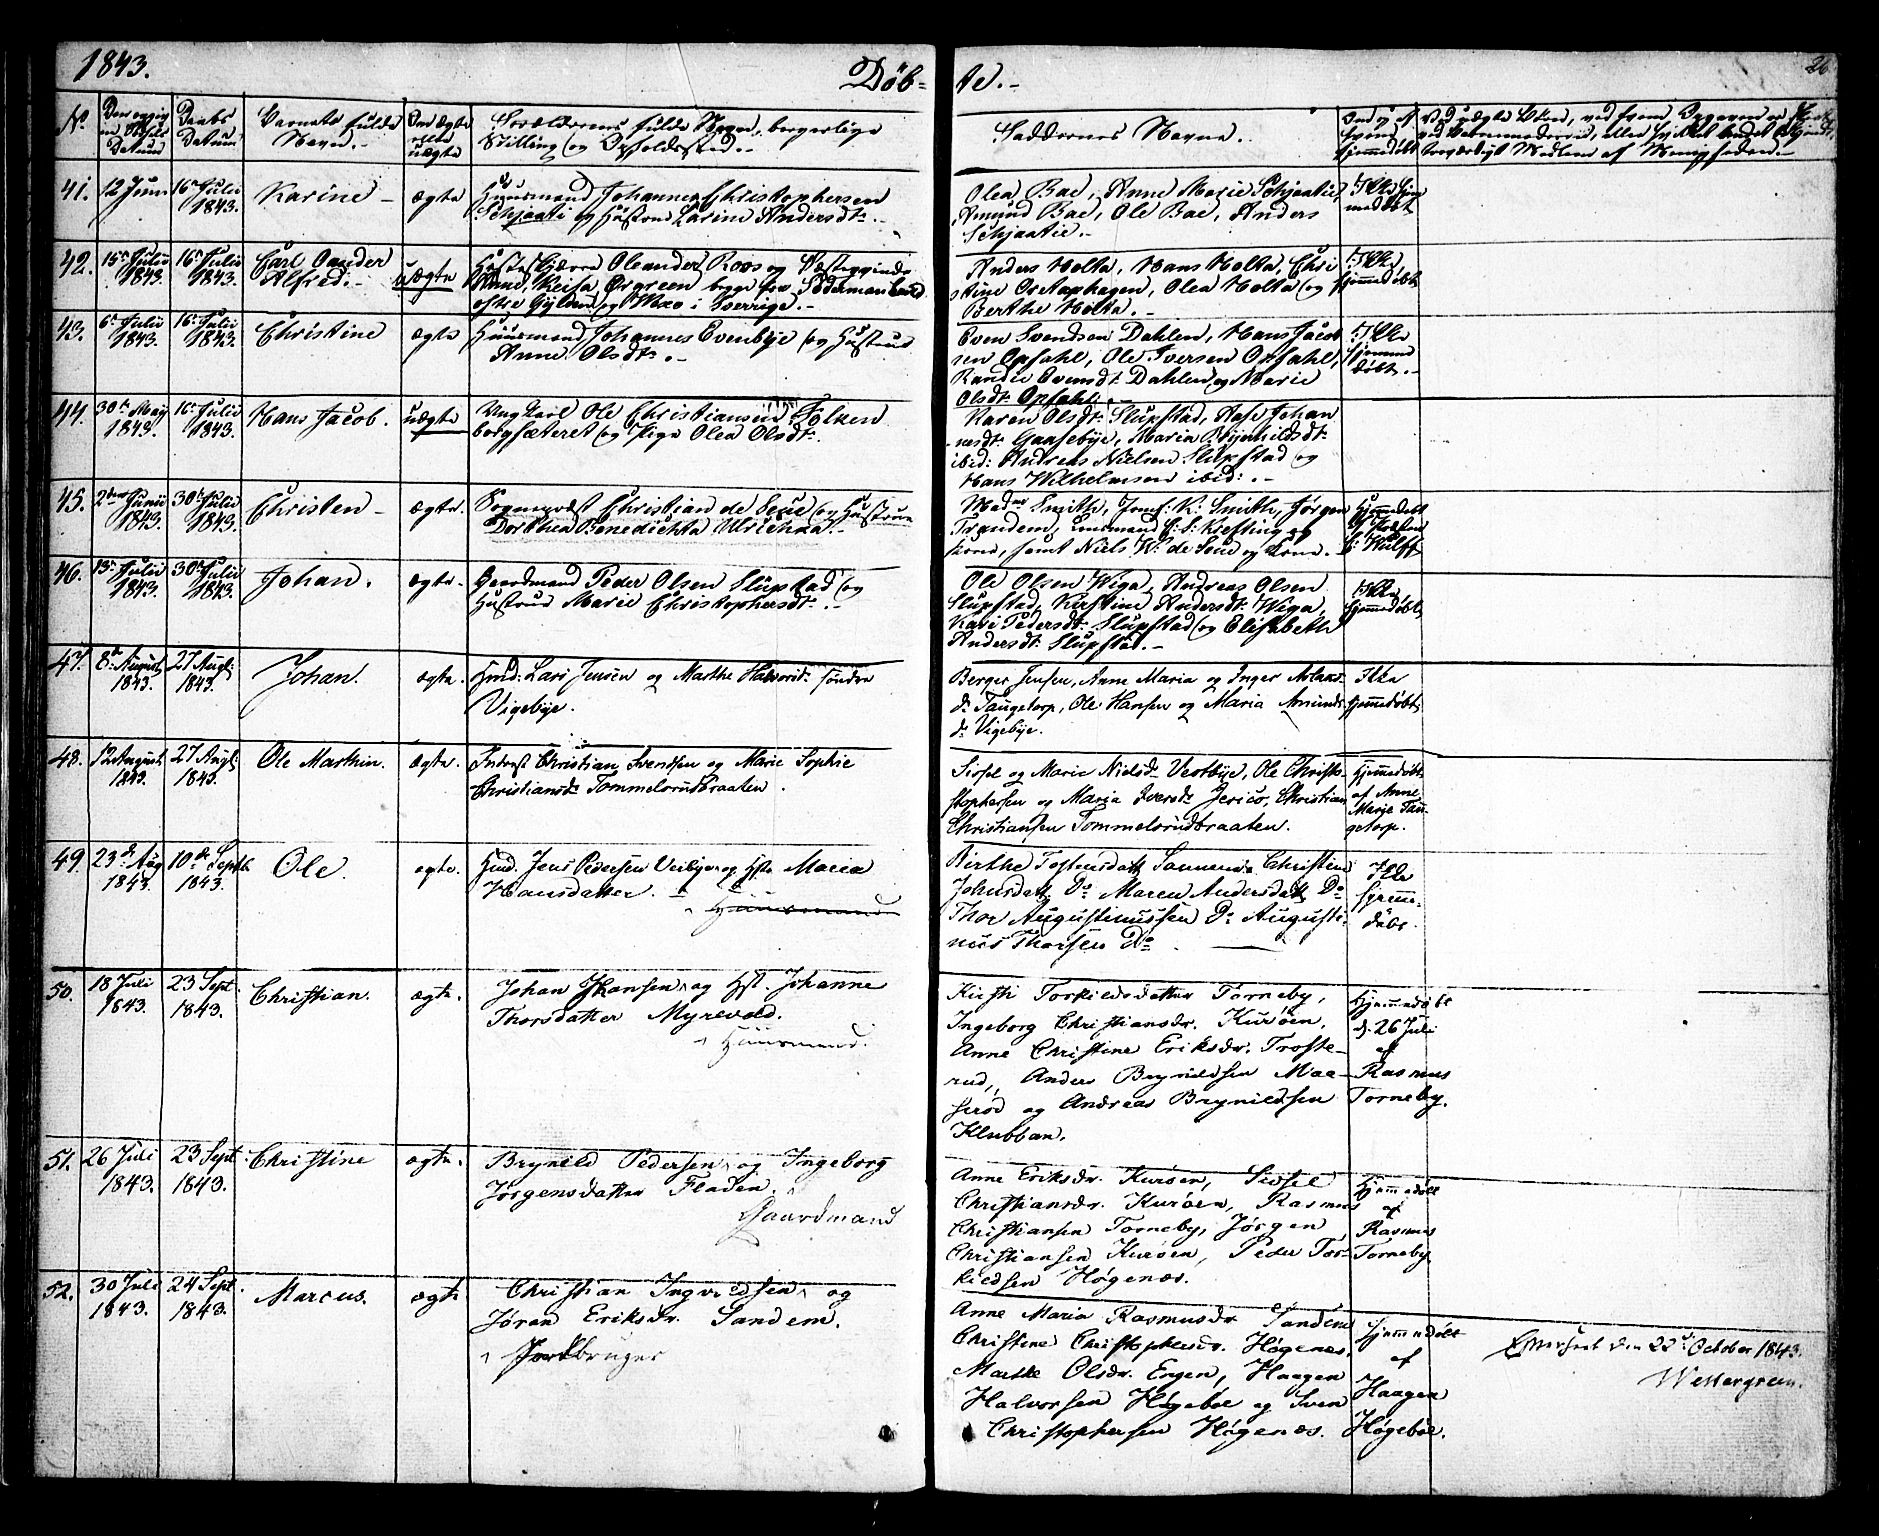 1843.
Döb-
te.-
26
No.
Barnets fulde
Navn.-
Forældrenes fulde Navne, borgerlige
Stilling og Opholdssted.-
Faddernes Navne.
41. 12 Juni 16de Julii 1843. Karine - ægte
Huusmand Johannes Christophersen
Schjaatie og Hustrue Karine Andersdt. -
Olea Bae, Anne Marie Schjaatie,
Amund Bae, Ole Bae, Anders
Schjaatie.-
42. 15de Julii 1843. 16de Julii 1843. Carl Oander
Alfred. - uægte
Oleander Roos og
Södermanland
i Sverrige. -
Anders Holta, Hans Holta, Chri
stine Ostophagen, Olea Holta og
Berthe Holta. -
43. 6te Julii 1843. 16de Julii 1843. Christine ægte
Huusmand Johannes Evenbye og Hustrue
Anne Olsdt. -
Even Svendsen Dahlen, Hans Jacob
sen Opsahl, Ole Iversen Opsahl,
Randie Evensdt. Dahlen og Marie
Olsdt. Opsahl. -
44. 30te May 1843. 16de Julii 1843. Hans Jacob. uægte
Ung Karl Ole Christiansen Folken
borgsæteret og Pige Olea Olsdt.
Karen Olsdt. Slupstad, Aase Johan
nesdt. Gaasebye, Maria Brynhildsdt.
ibid: Andreas Nielsen Slupstad og
Hans Wilhelmsen ibid: -
45. 2den Junii 1843. 30te Julii 1843. Christen - ægte.
Sogneprest Christian de Seue og Hustrue
Dorthea Benedichta Ulrichaa. -
Madme Smith, Jomf: K: Smith, Jørgen
Trandem, Lensmand C: S: Krefting og
Kone, samt Niels W. de Seue og Kone.
Hjemmedøbt
46. 13de Julii 1843. 30te Julii 1843. Johan. ægte.
Gaardmand Peder Olsen Slupstad og
Hustrue Marie Christophersdt. -
Ole Olsen Wiga, Andreas Olsen
Slupstad, Kirstine Andersdt. Wiga,
Kari Pedersdt. Slupstad og Elisabeth
Andersdt. Slupstad. -
Ikke
hjemmedøbt
47. 8de August 1843. 27 Augt. 1843. Johan. ægte.
Hmd: Lars Jensen og Marthe Halvorsd: søndre
Vigebye.
Berger Jensen, Anne Maria og Inger Aslaks-
dr. Taugetorp, Ole Hansen og Maria Amunds
dr. Vigebye.
Ikke
hjemmedøbt
48. 12 August 1843. 27 Augt. 1843. Ole Marthin. ægte.
Inderst Christian Svendsen og Marie Sophie
Christiansdr. Tommelsrudbraaten.
Sissel og Marie Nielsdr. Vestbye, Ole Christi-
stophersen og Maria Iversdr. Jerico, Christian
Christiansen Tommelsrudbraaten.
Hjemmedøbt
af Anne
Marie Tau-
getorp.
49. 23de Aug 1843. 10de Septbr 1843. Ole. ægte.
Hmd. Jens Pedersen Veibye og Hst. Maria
Hansdatter.
Huusmand
Birthe Tostensdatt. Sannem, Christine
Johnsdatt. Do Maren Andersdatt. Do
Thor Augustinussen Do Augusti-
nus Thorsen Do
Ikke
hjemme-
døbt.
50. 18 Juli 1843. 23 Sept. 1843. Christian. ægte.
Johan Hansen, og Hst. Johanne
Thorsdatter Myrevold.
Huusmand.
Kirsti Torkildsdatter Torneby,
Ingeborg Christiansdr. Kurøen,
Anne Christine Eriksdr. Troste-
rud, Anders Brynildsen Mae-
serød og Andreas Brynildsen
Klubban.
Hjemmedøbt
d. 26 Juli
af
Rasmus
Torneby.
51. 26 Juli 1843. 23 Sept. 1843. Christine ægte.
Brynild Pedersen, og Ingeborg
Jørgensdatter Fladen.
Gaardmand
Anne Eriksdr. Kurøen, Sissel
Christiansdr. Kurøen, Rasmus
Christiansen Torneby, Jørgen
Christiansen Kurøen, Peder Tor-
kildsen Høgenæs.
Hjemmedøbt
af
Rasmus
Torneby
52. 30 Juli 1843. 24 Sept. 1843. Marcus. ægte
Christian Ingvaldsen, og
Jøran Eriksdr. Sandem.
Jordbruger
Anne Maria Rasmusdr. Sandem
Christine Christophersdr. Høgenæs,
Marthe Olsdr. Engen, Haagen
Halvorsen Høgeboe og Sven
Christophersen Høgenæs.
Hjemmedøbt
af
Haagen
Høgeboe.
Efterseet den 22de October 1843.
Westergreen.